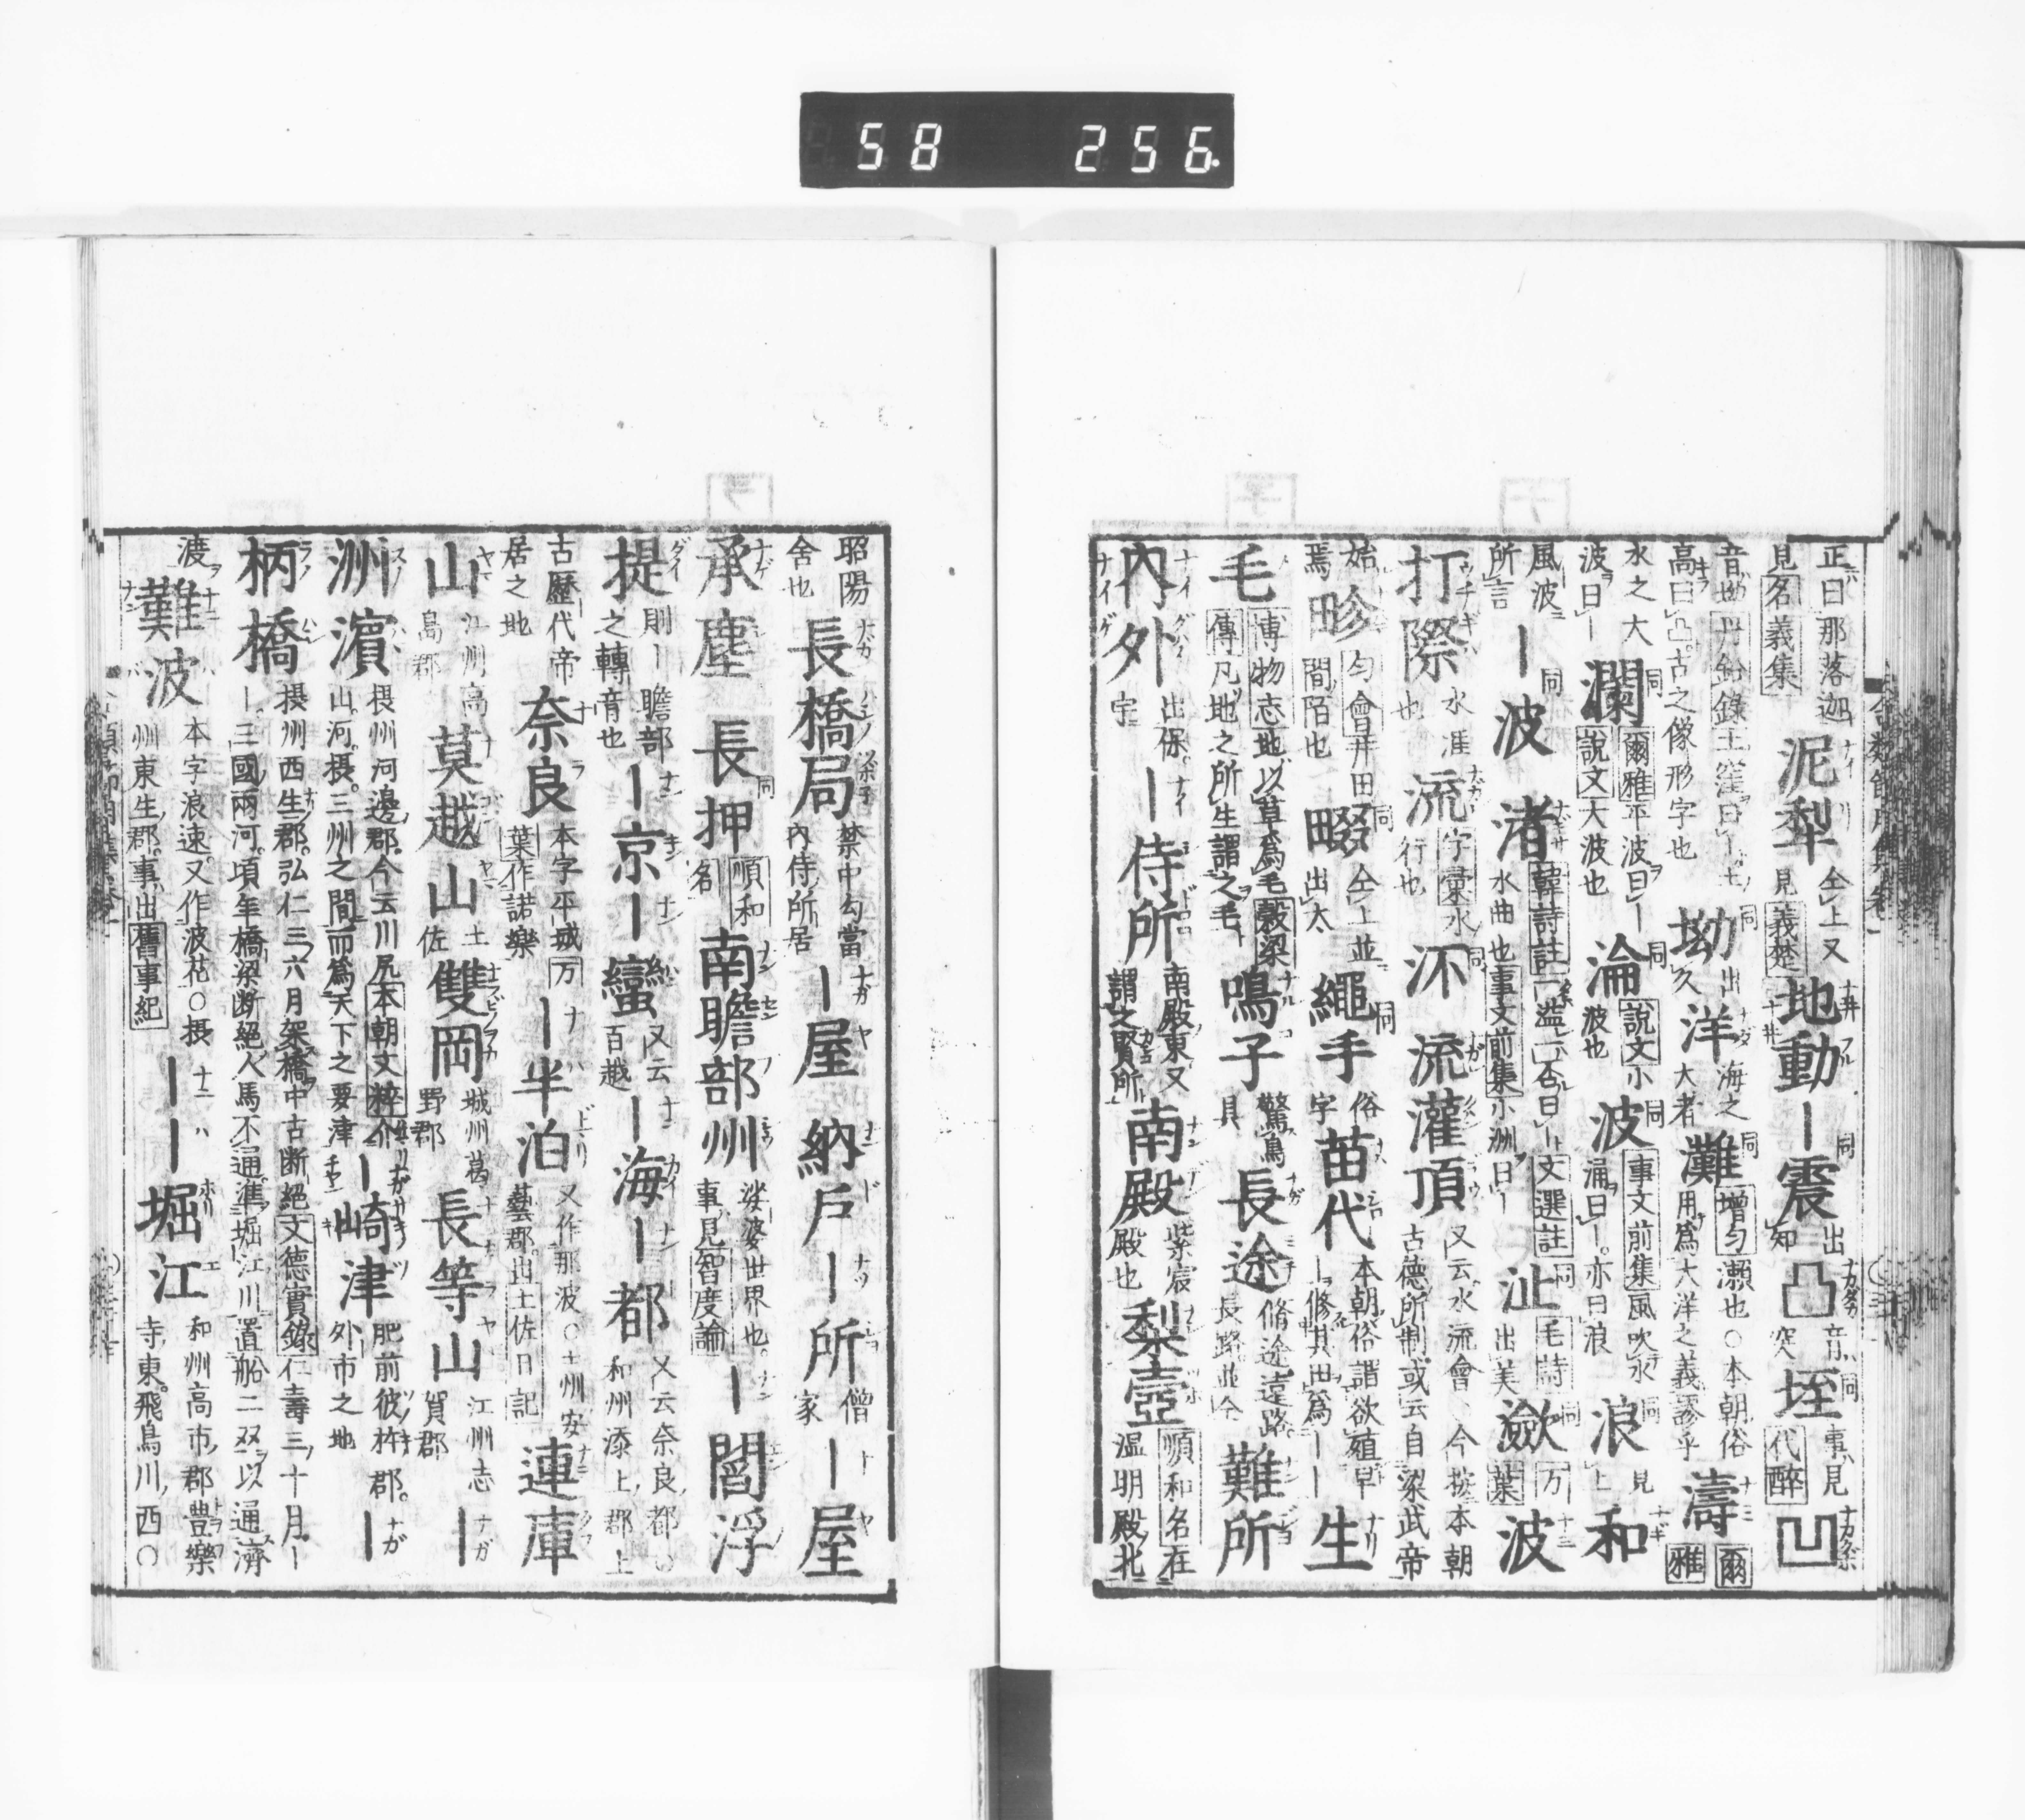 58 256
正曰那落迦
見名義集
泥犁 仝上又見義楚
地動
｜震 出知
凸 音突
垤 事見代醉
凹
音坳丹鉛錄土窪曰｜土
高曰凸。古之像形字也
坳 出久
洋 海之大者
灘 增勻瀬也○本朝俗用爲大洋之義謬乎
濤 爾雅
水之大波曰｜
瀾 爾雅平波曰｜說文大波也
淪 說文小波也
波 事文前集風吹水涌曰｜。亦曰浪
浪 見上
和
風波所言
｜波
渚 韓詩註一溢一否曰｜文選註水曲也事文前集小洲曰｜
沚 毛詩出美
瀲 万葉
波
打際 水涯也
流 字彙水行也
沠
流灌頂 又云水流會今按本朝古德所制或云自梁武帝始焉
畛 勻會井田間陌也
畷 仝上並出太
繩手 俗字
苗代 本朝俗謂欲殖早｜修其田爲｜｜
生
毛 博物志地以草爲毛穀梁傳凡地之所生謂之毛
鳴子 驚鳥具
長途 脩途遠路。長路並仝
難所
內外 出保。字
｜侍所 南殿東又謂之賢所
南殿 紫宸殿也
梨壺 順和名在溫明殿北
昭陽舍也
長橋局 禁中勾當內侍所居
｜屋
納戶
｜所 僧家
｜屋
承塵
長押 順和名
南瞻部州 娑婆世界也。事見智度論
｜閻浮
提 則｜瞻部之轉音也
｜京｜
蠻 又云百越
｜海｜
都 又云奈良都○和州添上郡上古歷代帝居之地
奈良 本字平城万葉作諾樂
｜半泊 又作那波○土州安藝郡。出土佐日記
連庫
山 江州高島郡
莫越山 土佐
雙岡 城州葛野郡
長等山 江州志賀郡
｜
洲濱 摂州河邊郡。今云川尻本朝文粹介山。河。摂。三州之間而爲天下之要津
｜崎津 肥前彼杵郡。外市之地
｜
柄橋 摂州西生郡。弘仁三六月架橋中古断絕文德實錄仁壽三十月｜｜。三國兩河。頃年橋梁断絕人馬不通準堀江川置船二双以通濟渡
難波 本字浪速。又作波花○摂州東生郡。事出舊事紀
｜｜堀江 和州高市郡豊樂寺東。飛鳥川西○